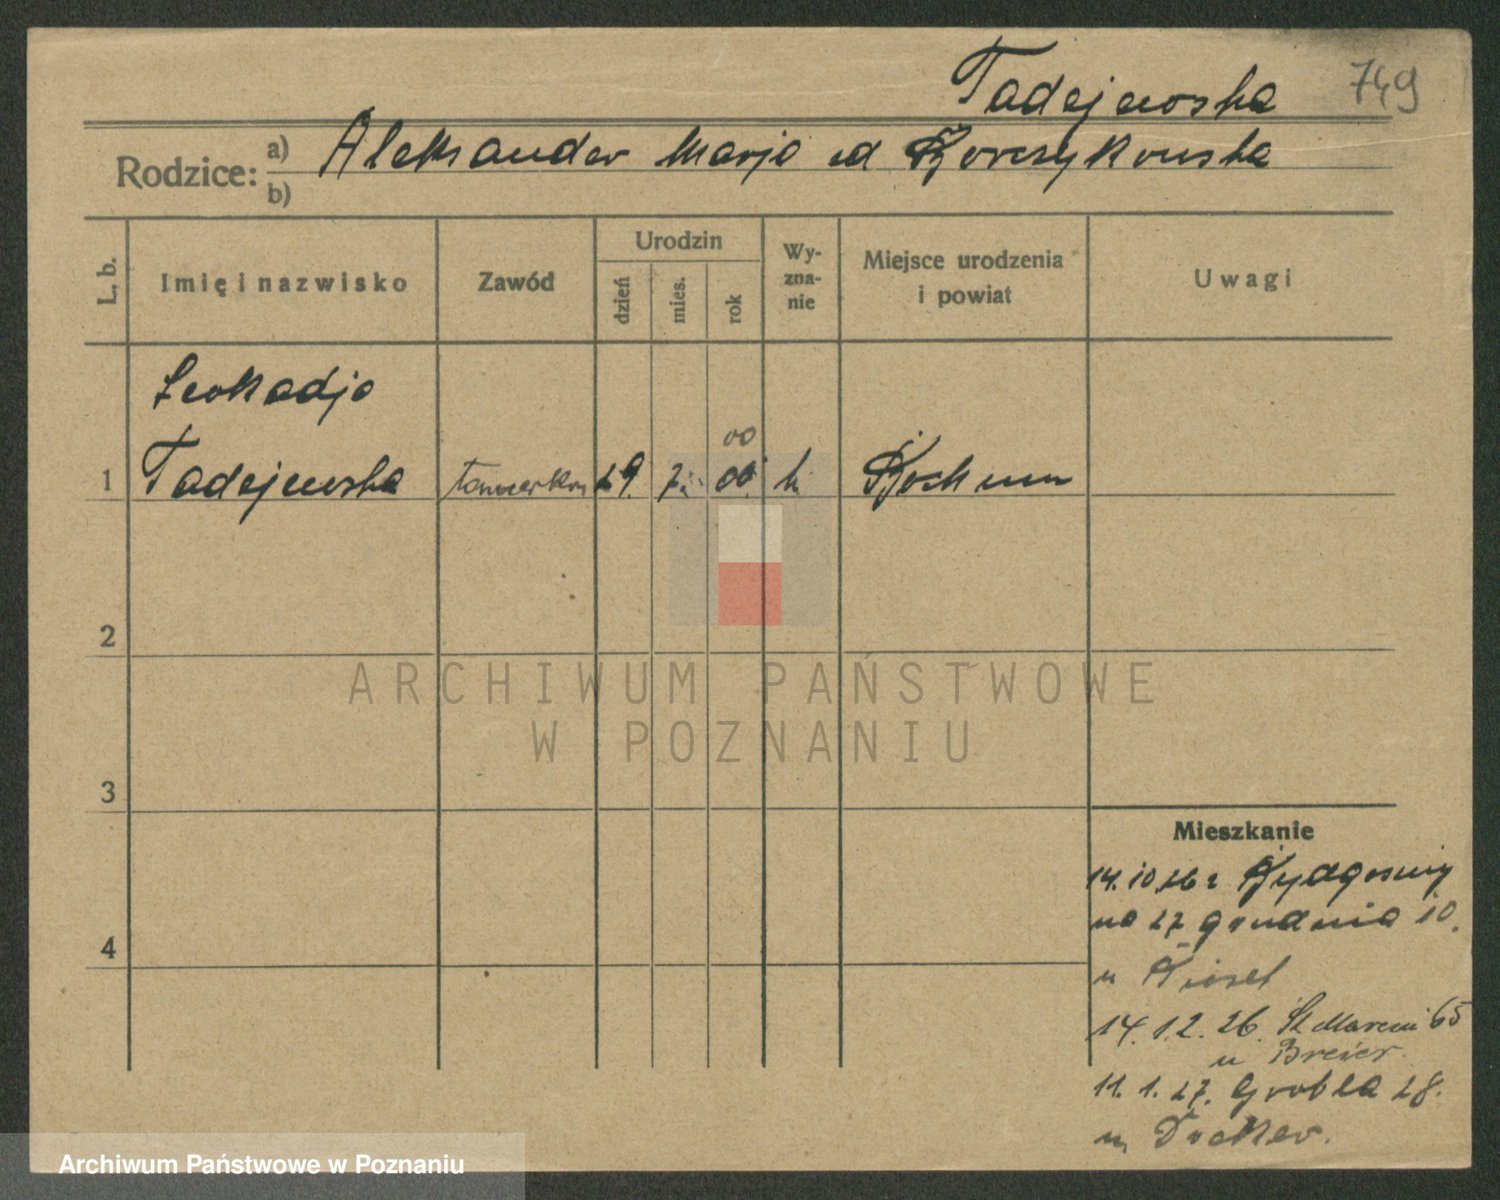 Tadejewska 749
Rodzice: a) Aleksander Marja
b)
L. b.
Imię i nazwisko
Zawód
Urodzin
dzień
mies.
rok
Wy-
zna-
nie
Miejsce urodzenia
i powiat
Uwagi
Leokadja
00
1 Tadejewska 29. 7. 00 k Bochum
2
3
4
Mieszkanie
14. 10 26 z Bydgoszczy
na 27 grudnia 10.
u
14. 12. 26. St Marcin 65
u Breier.
11. 1. 27. Grobla 28.
u
ARCHIWUM PAŃSTWOWE
W POZNANIU
Archiwum Państwowe w Poznaniu